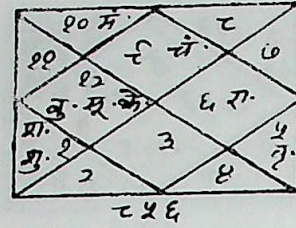 १० मं. ८
११ ९ चं. ७
१२
बु. सू. के. ६ रा.
श. ५
शु. १ ३ वृ.
२ ४
८५६